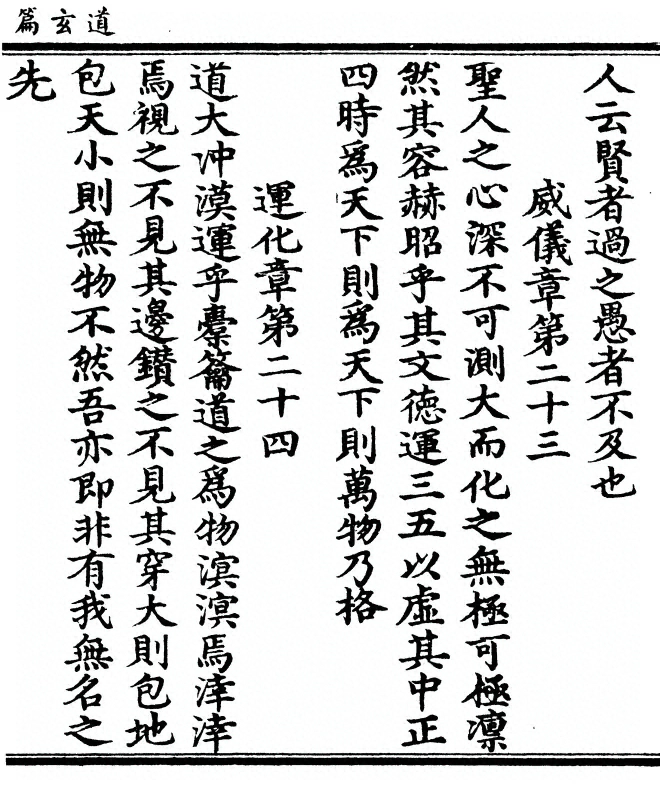 道玄篇
人云賢者過之愚者不及也
威儀章第二十三
聖人之心深不可測大而化之無極可極凛
然其容赫昭乎其文德運三五以虛其中正
四時為天下則為天下則萬物乃格
運化章第二十四
道大冲漠運乎橐籥道之為物溟溟焉涬涬
焉視之不見其邊鑚之不見其穿大則包地
包天小則無物不然吾亦即非有我無名之
先